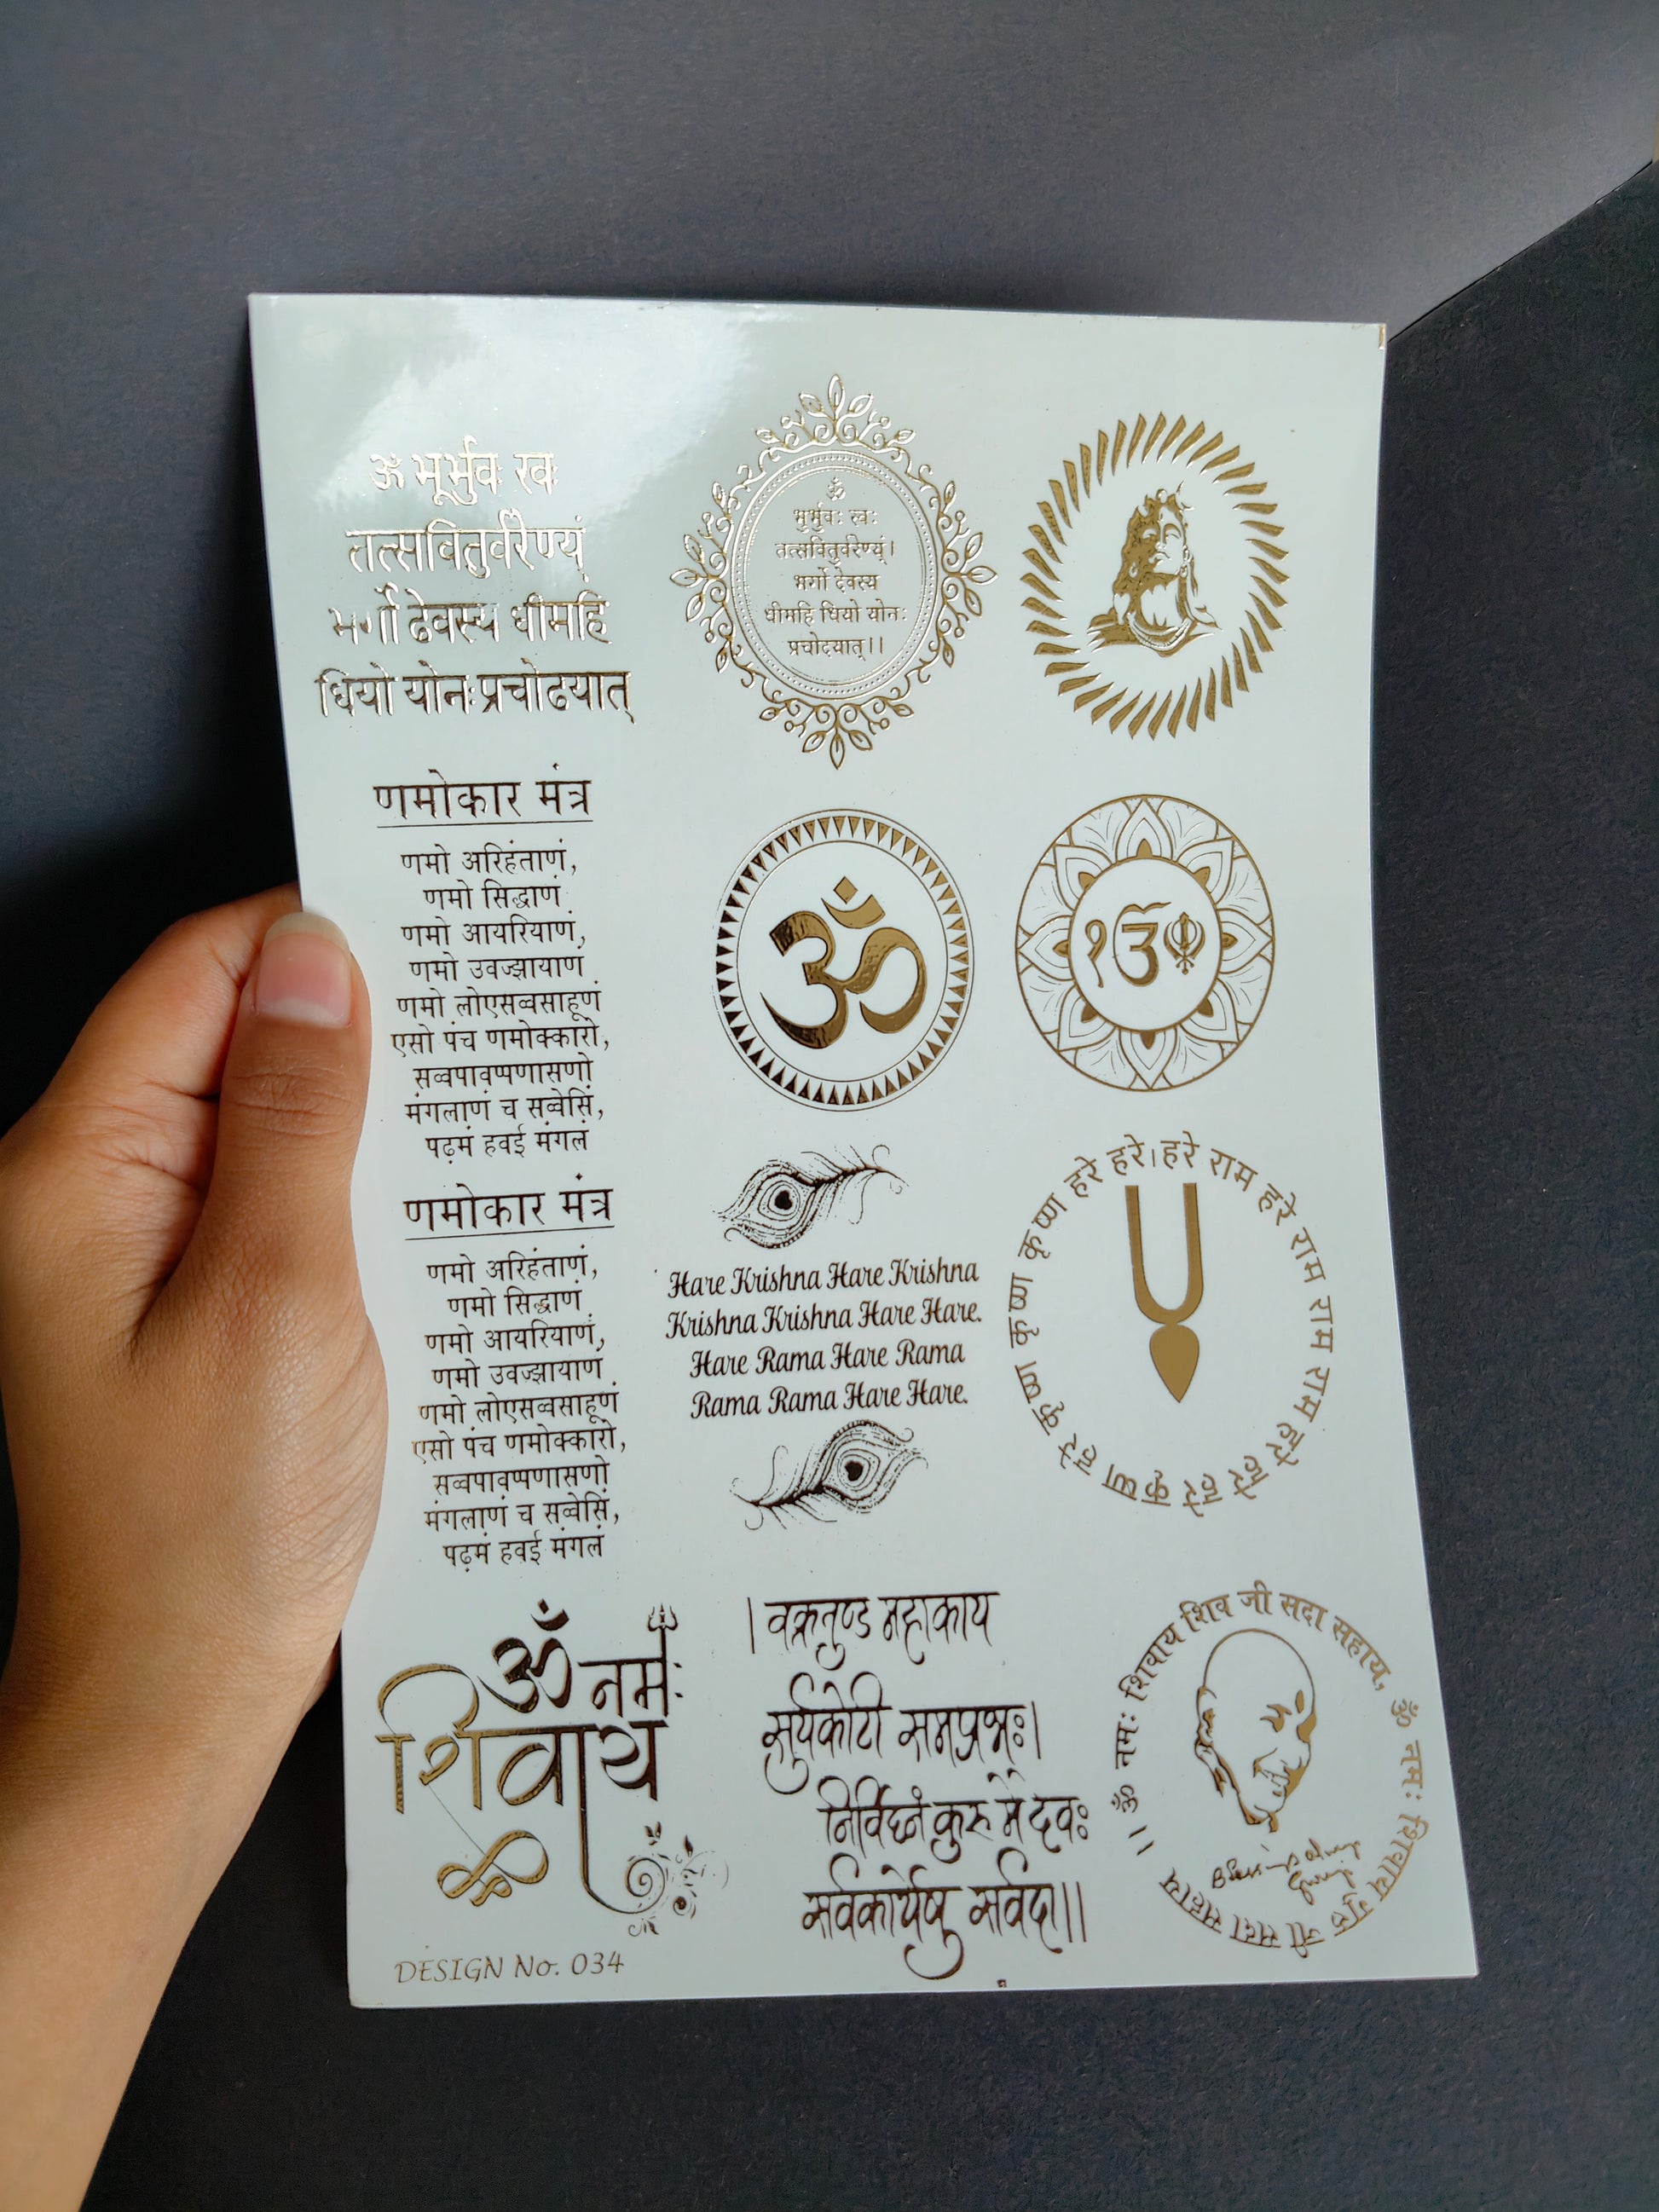 ॐ भूर्भुव स्व
तत्सवितुर्वरेण्यं
भर्गो देवस्य धीमहि
धियो योनः प्रचोदयात्
ॐ
भुर्भुवः स्वः
तत्सवितुर्वरेण्यं।
भर्गो देवस्य
धीमहि धियो योनः
प्रचोदयात्।।
णमोकार मंत्र
णमो अरिहंताणं,
णमो सिद्धाणं
णमो आयरियाणं,
णमो उवज्झायाणं
णमो लोएसव्वसाहूणं
एसो पंच णमोक्कारो,
सव्वपावप्पणासणो
मंगलाणं च सव्वेसिं,
पढ़मं हवई मंगलं
ॐ
੧ੴ
णमोकार मंत्र
णमो अरिहंताणं,
णमो सिद्धाणं
णमो आयरियाणं,
णमो उवज्झायाणं
णमो लोएसव्वसाहूणं
एसो पंच णमोक्कारो,
सव्वपावप्पणासणो
मंगलाणं च सव्वेसिं,
पढ़मं हवई मंगलं
Hare Krishna Hare Krishna
Krishna Krishna Hare Hare.
Hare Rama Hare Rama
Rama Rama Hare Hare.
हरे राम हरे राम राम राम हरे हरे हरे कृष्ण हरे कृष्ण कृष्ण कृष्ण हरे हरे।
ॐ नमः
शिवाय
। वक्रतुण्ड महाकाय
सुर्यकोटी समप्रभः।
निर्विघ्नं कुरु मे देवः
सर्वकार्येषु सर्वदा।।
।। ॐ नमः शिवाय शिव जी सदा सहाय, ॐ नमः शिवाय गुरु जी सदा सहाय
Blessings
DESIGN No. 034